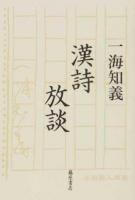 一海知義
漢詩
放談
藤原書店